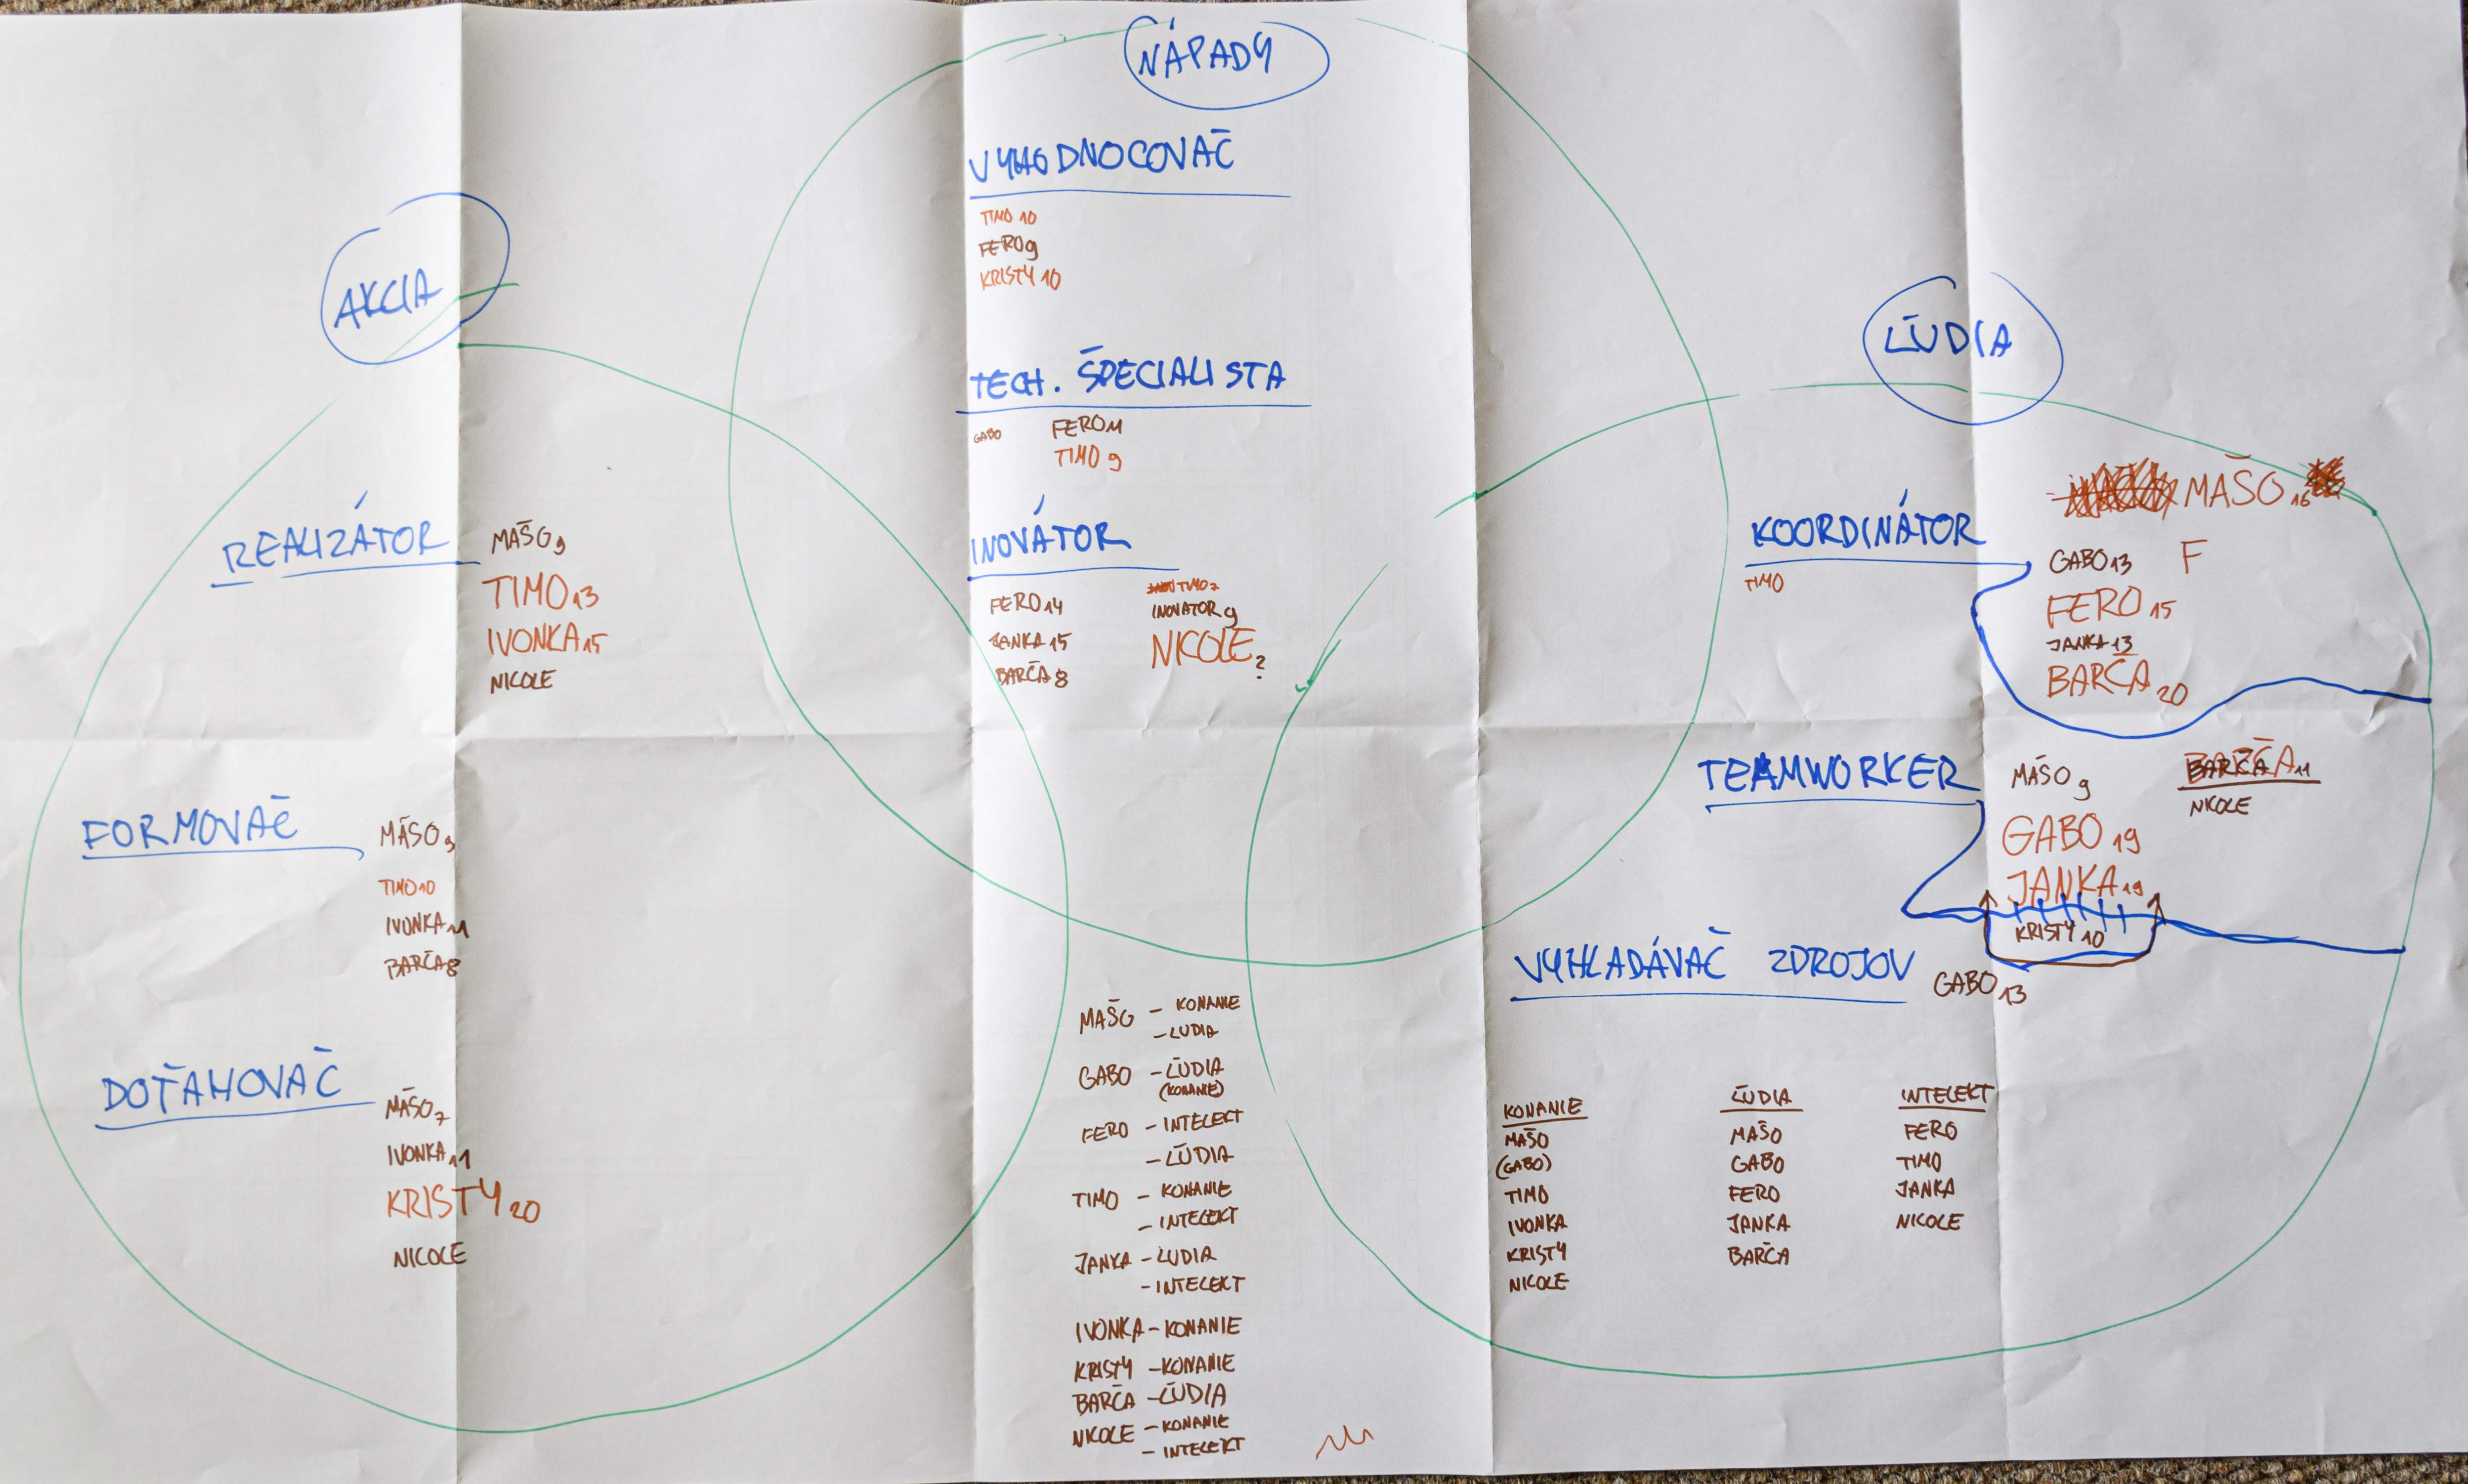 NÁPADY
VYHODNOCOVAČ
TIMO 10
FERO 9
KRISTY 10
TECH. ŠPECIALISTA
GABO
FERO 11
TIMO 9
INOVÁTOR
FERO 14
JANKA 15
BARČA 8
TIMO 7
INOVATOR 9
NICOLE ?
AKCIA
REALIZÁTOR
MAŠO 9
TIMO 13
IVONKA 15
NICOLE
FORMOVAČ
MAŠO 9
TIMO 10
IVONKA 11
BARČA 8
DOŤAHOVAČ
MAŠO 7
IVONKA 11
KRISTY 20
NICOLE
ĽUDIA
KOORDINÁTOR
TIMO
MAŠO 16
GABO 13 F
FERO 15
JANKA 13
BARČA 20
TEAMWORKER
MAŠO 9
GABO 19
JANKA 19
KRISTY 10
BARČA 11
NICOLE
VYHĽADÁVAČ ZDROJOV
GABO 13
MAŠO – KONANIE
– ĽUDIA
GABO – ĽUDIA
(KONANIE)
FERO – INTELEKT
– ĽUDIA
TIMO – KONANIE
– INTELEKT
JANKA – ĽUDIA
– INTELEKT
IVONKA – KONANIE
KRISTY – KONANIE
BARČA – ĽUDIA
NICOLE – KONANIE
– INTELEKT
KONANIE
MAŠO
(GABO)
TIMO
IVONKA
KRISTY
NICOLE
ĽUDIA
MAŠO
GABO
FERO
JANKA
BARČA
INTELEKT
FERO
TIMO
JANKA
NICOLE